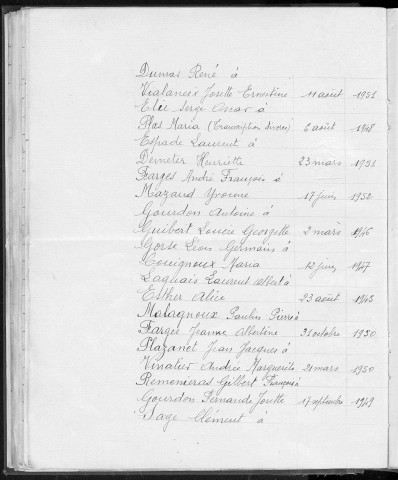 Dumas René à
Vialaneix Josette Ernestine 11 août 1951
Elie Serge Oscar à
Plas Maria (Transcription divorce) 6 août 1948
Espade Laurent à
Demeter Henriette 23 mars 1951
Farges André François à
Mazaud Yvonne 17 juin 1952
Gourdon Antoine à
Guibert Loucie Georgette 2 mars 1946
Gorse Léon Germain à
Couignoux Maria 12 juin 1947
Laquais Laurent Albert à
Esther Alice 23 août 1945
Malagnoux Paulin Pierre à
Farges Jeanne Albertine 31 octobre 1950
Plazanet Jean Jacques à
Vinatier Andrée Marguerite 21 mars 1950
Remenieras Gilbert François à
Gourdon Fernande Josette 17 septembre 1949
Sage Clément à